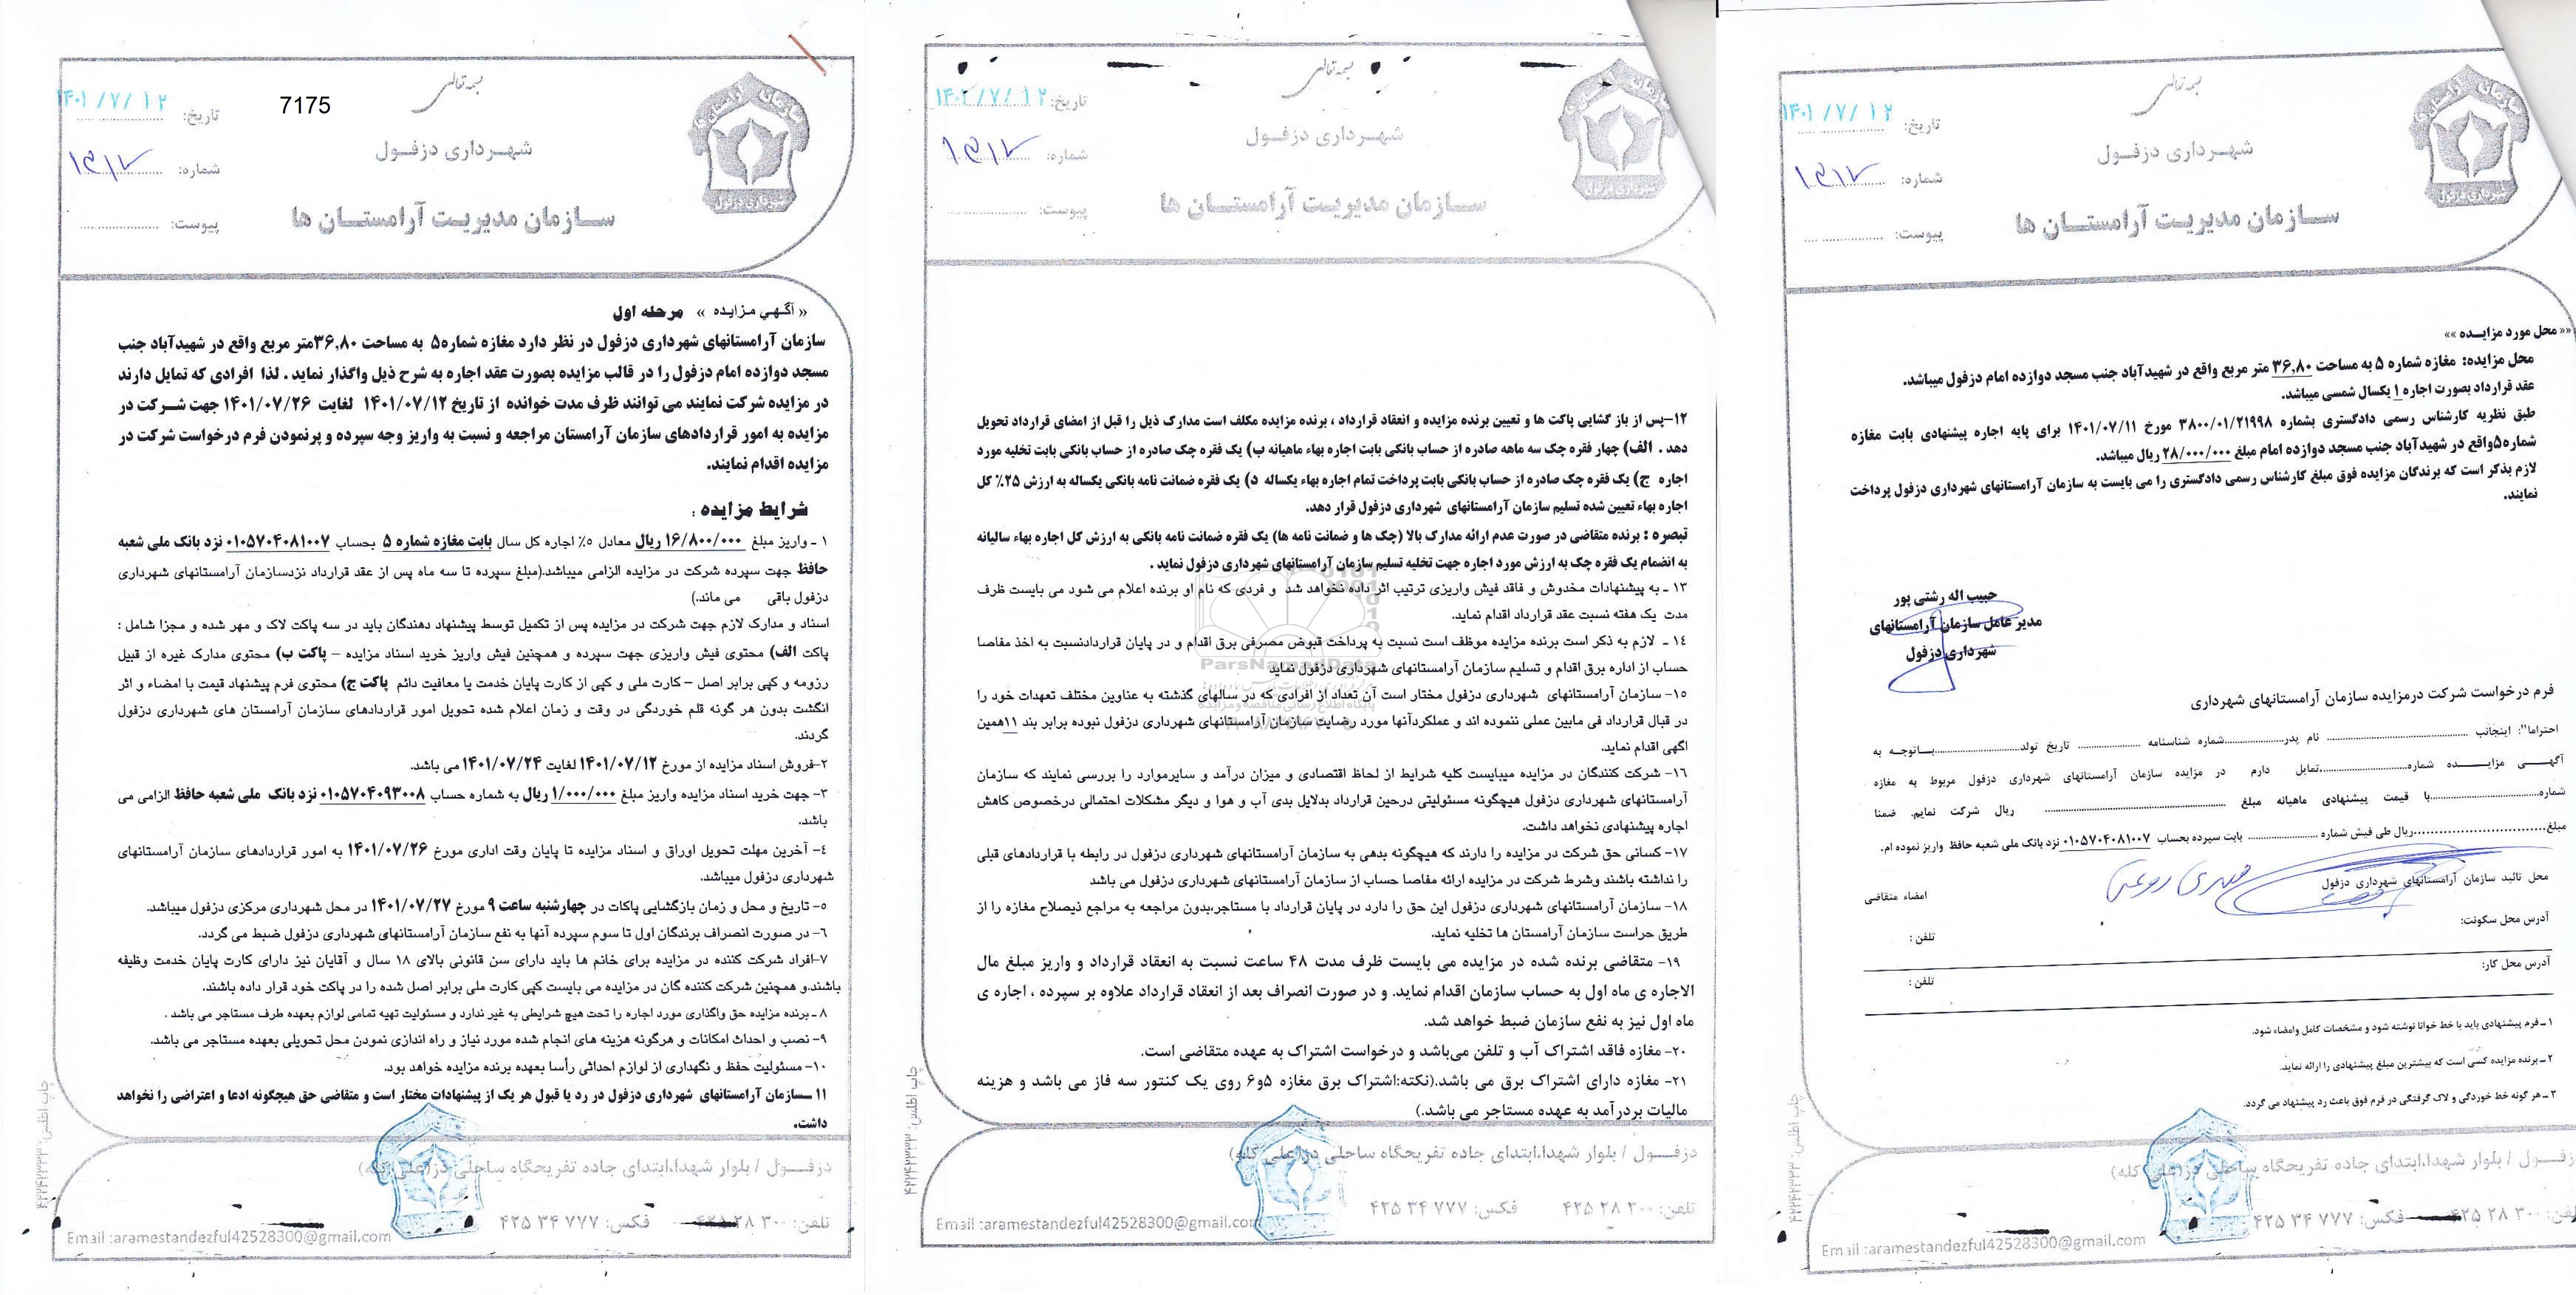 بسمه تعالی
7175
شهرداری دزفول
سازمان مدیریت آرامستان ها
تاریخ: ۱۴۰۱/۷/۱۲
شماره:
پیوست:
« آگهی مزایده » مرحله اول
سازمان آرامستانهای شهرداری دزفول در نظر دارد مغازه شماره۵ به مساحت ۳۶,۸۰متر مربع واقع در شهیدآباد جنب
مسجد دوازده امام دزفول را در قالب مزایده بصورت عقد اجاره به شرح ذیل واگذار نماید . لذا افرادی که تمایل دارند
در مزایده شرکت نمایند می توانند ظرف مدت خوانده از تاریخ ۱۴۰۱/۰۷/۱۲ لغایت ۱۴۰۱/۰۷/۲۶ جهت شرکت در
مزایده به امور قراردادهای سازمان آرامستان مراجعه و نسبت به واریز وجه سپرده و پرنمودن فرم درخواست شرکت در
مزایده اقدام نمایند.
شرایط مزایده :
۱ ـ واریز مبلغ ۱۶/۸۰۰/۰۰۰ ریال معادل ۵٪ اجاره کل سال بابت مغازه شماره ۵ بحساب ۰۱۰۵۷۰۴۰۸۱۰۰۷ نزد بانک ملی شعبه
حافظ جهت سپرده شرکت در مزایده الزامی میباشد.(مبلغ سپرده تا سه ماه پس از عقد قرارداد نزدسازمان آرامستانهای شهرداری
دزفول باقی می ماند.)
اسناد و مدارک لازم جهت شرکت در مزایده پس از تکمیل توسط پیشنهاد دهندگان باید در سه پاکت لاک و مهر شده و مجزا شامل :
پاکت الف) محتوی فیش واریزی جهت سپرده و همچنین فیش واریز خرید اسناد مزایده – پاکت ب) محتوی مدارک غیره از قبیل
رزومه و کپی برابر اصل – کارت ملی و کپی از کارت پایان خدمت یا معافیت دائم پاکت ج) محتوی فرم پیشنهاد قیمت با امضاء و اثر
انگشت بدون هر گونه قلم خوردگی در وقت و زمان اعلام شده تحویل امور قراردادهای سازمان آرامستان های شهرداری دزفول
گردند.
۲–فروش اسناد مزایده از مورخ ۱۴۰۱/۰۷/۱۲ لغایت ۱۴۰۱/۰۷/۲۴ می باشد.
۳– جهت خرید اسناد مزایده واریز مبلغ ۱/۰۰۰/۰۰۰ ریال به شماره حساب ۰۱۰۵۷۰۴۰۹۳۰۰۸ نزد بانک ملی شعبه حافظ الزامی می
باشد.
۴– آخرین مهلت تحویل اوراق و اسناد مزایده تا پایان وقت اداری مورخ ۱۴۰۱/۰۷/۲۶ به امور قراردادهای سازمان آرامستانهای
شهرداری دزفول میباشد.
۵– تاریخ و محل و زمان بازگشایی پاکات در چهارشنبه ساعت ۹ مورخ ۱۴۰۱/۰۷/۲۷ در محل شهرداری مرکزی دزفول میباشد.
۶– در صورت انصراف برندگان اول تا سوم سپرده آنها به نفع سازمان آرامستانهای شهرداری دزفول ضبط می گردد.
۷–افراد شرکت کننده در مزایده برای خانم ها باید دارای سن قانونی بالای ۱۸ سال و آقایان نیز دارای کارت پایان خدمت وظیفه
باشند.و همچنین شرکت کننده گان در مزایده می بایست کپی کارت ملی برابر اصل شده را در پاکت خود قرار داده باشند.
۸ ـ برنده مزایده حق واگذاری مورد اجاره را تحت هیچ شرایطی به غیر ندارد و مسئولیت تهیه تمامی لوازم بعهده طرف مستاجر می باشد .
۹– نصب و احداث امکانات و هرگونه هزینه های انجام شده مورد نیاز و راه اندازی نمودن محل تحویلی بعهده مستاجر می باشد.
۱۰– مسئولیت حفظ و نگهداری از لوازم احداثی رأسا بعهده برنده مزایده خواهد بود.
۱۱ ــسازمان آرامستانهای شهرداری دزفول در رد یا قبول هر یک از پیشنهادات مختار است و متقاضی حق هیچگونه ادعا و اعتراضی را نخواهد
داشت.
دزفول / بلوار شهدا،ابتدای جاده تفریحگاه ساحلی دز(علی کله)
تلفن: ۳۰۰ ۲۸ ۴۲۵ فکس: ۷۷۷ ۳۴ ۴۲۵
Email :aramestandezful42528300@gmail.com
چاپ اطلس: ۴۲۲۴۲۳۳۳
بسمه تعالی
شهرداری دزفول
سازمان مدیریت آرامستان ها
تاریخ: ۱۴۰۱/۷/۱۲
شماره:
پیوست:
۱۲–پس از باز گشایی پاکت ها و تعیین برنده مزایده و انعقاد قرارداد ، برنده مزایده مکلف است مدارک ذیل را قبل از امضای قرارداد تحویل
دهد . الف) چهار فقره چک سه ماهه صادره از حساب بانکی بابت اجاره بهاء ماهیانه ب) یک فقره چک صادره از حساب بانکی بابت تخلیه مورد
اجاره ج) یک فقره چک صادره از حساب بانکی بابت پرداخت تمام اجاره بهاء یکساله د) یک فقره ضمانت نامه بانکی یکساله به ارزش ۲۵٪ کل
اجاره بهاء تعیین شده تسلیم سازمان آرامستانهای شهرداری دزفول قرار دهد.
تبصره : برنده متقاضی در صورت عدم ارائه مدارک بالا (چک ها و ضمانت نامه ها) یک فقره ضمانت نامه بانکی به ارزش کل اجاره بهاء سالیانه
به انضمام یک فقره چک به ارزش مورد اجاره جهت تخلیه تسلیم سازمان آرامستانهای شهرداری دزفول نماید .
۱۳ ـ به پیشنهادات مخدوش و فاقد فیش واریزی ترتیب اثر داده نخواهد شد و فردی که نام او برنده اعلام می شود می بایست ظرف
مدت یک هفته نسبت عقد قرارداد اقدام نماید.
۱۴ ـ لازم به ذکر است برنده مزایده موظف است نسبت به پرداخت قبوض مصرفی برق اقدام و در پایان قراردادنسبت به اخذ مفاصا
حساب از اداره برق اقدام و تسلیم سازمان آرامستانهای شهرداری دزفول نماید
ParsNamadData
پایگاه اطلاع رسانی مناقصه و مزایده
۱۵– سازمان آرامستانهای شهرداری دزفول مختار است آن تعداد از افرادی که در سالهای گذشته به عناوین مختلف تعهدات خود را
در قبال قرارداد فی مابین عملی ننموده اند و عملکردآنها مورد رضایت سازمان آرامستانهای شهرداری دزفول نبوده برابر بند ۱۱همین
اگهی اقدام نماید.
۱۶– شرکت کنندگان در مزایده میبایست کلیه شرایط از لحاظ اقتصادی و میزان درآمد و سایرموارد را بررسی نمایند که سازمان
آرامستانهای شهرداری دزفول هیچگونه مسئولیتی درحین قرارداد بدلایل بدی آب و هوا و دیگر مشکلات احتمالی درخصوص کاهش
اجاره پیشنهادی نخواهد داشت.
۱۷– کسانی حق شرکت در مزایده را دارند که هیچگونه بدهی به سازمان آرامستانهای شهرداری دزفول در رابطه با قراردادهای قبلی
را نداشته باشند وشرط شرکت در مزایده ارائه مفاصا حساب از سازمان آرامستانهای شهرداری دزفول می باشد
۱۸– سازمان آرامستانهای شهرداری دزفول این حق را دارد در پایان قرارداد با مستاجر،بدون مراجعه به مراجع ذیصلاح مغازه را از
طریق حراست سازمان آرامستان ها تخلیه نماید.
۱۹– متقاضی برنده شده در مزایده می بایست ظرف مدت ۴۸ ساعت نسبت به انعقاد قرارداد و واریز مبلغ مال
الاجاره ی ماه اول به حساب سازمان اقدام نماید. و در صورت انصراف بعد از انعقاد قرارداد علاوه بر سپرده ، اجاره ی
ماه اول نیز به نفع سازمان ضبط خواهد شد.
۲۰– مغازه فاقد اشتراک آب و تلفن می‌باشد و درخواست اشتراک به عهده متقاضی است.
۲۱– مغازه دارای اشتراک برق می باشد.(نکته:اشتراک برق مغازه ۵و۶ روی یک کنتور سه فاز می باشد و هزینه
مالیات بردرآمد به عهده مستاجر می باشد.)
دزفول / بلوار شهدا،ابتدای جاده تفریحگاه ساحلی دز(علی کله)
تلفن: ۳۰۰ ۲۸ ۴۲۵ فکس: ۷۷۷ ۳۴ ۴۲۵
Email :aramestandezful42528300@gmail.com
چاپ اطلس: ۴۲۲۴۲۳۳۳
بسمه تعالی
شهرداری دزفول
سازمان مدیریت آرامستان ها
تاریخ: ۱۴۰۱/۷/۱۲
شماره:
پیوست:
«« محل مورد مزایده »»
محل مزایده: مغازه شماره ۵ به مساحت ۳۶,۸۰ متر مربع واقع در شهیدآباد جنب مسجد دوازده امام دزفول میباشد.
عقد قرارداد بصورت اجاره ۱ یکسال شمسی میباشد.
طبق نظریه کارشناس رسمی دادگستری بشماره ۳۸۰۰/۰۱/۲۱۹۹۸ مورخ ۱۴۰۱/۰۷/۱۱ برای پایه اجاره پیشنهادی بابت مغازه
شماره۵واقع در شهیدآباد جنب مسجد دوازده امام مبلغ ۲۸/۰۰۰/۰۰۰ ریال میباشد.
لازم بذکر است که برندگان مزایده فوق مبلغ کارشناس رسمی دادگستری را می بایست به سازمان آرامستانهای شهرداری دزفول پرداخت
نمایند.
حبیب اله رشتی پور
مدیر عامل سازمان آرامستانهای
شهرداری دزفول
فرم درخواست شرکت درمزایده سازمان آرامستانهای شهرداری
احتراما": اینجانب ........ نام پدر........شماره شناسنامه ........ تاریخ تولد........باتوجه به
آگهی مزایده شماره........تمایل دارم در مزایده سازمان آرامستانهای شهرداری دزفول مربوط به مغازه
شماره........با قیمت پیشنهادی ماهیانه مبلغ ........ ریال شرکت نمایم. ضمنا
مبلغ........ریال طی فیش شماره ........ بابت سپرده بحساب ۰۱۰۵۷۰۴۰۸۱۰۰۷ نزد بانک ملی شعبه حافظ واریز نموده ام.
محل تائید سازمان آرامستانهای شهرداری دزفول
امضاء متقاضی
آدرس محل سکونت:
تلفن :
آدرس محل کار:
تلفن :
۱ ـ فرم پیشنهادی باید با خط خوانا نوشته شود و مشخصات کامل وامضاء شود.
۲ ـ برنده مزایده کسی است که بیشترین مبلغ پیشنهادی را ارائه نماید.
۳ ـ هر گونه خط خوردگی و لاک گرفتگی در فرم فوق باعث رد پیشنهاد می گردد.
دزفول / بلوار شهدا،ابتدای جاده تفریحگاه ساحلی دز(علی کله)
تلفن: ۳۰۰ ۲۸ ۴۲۵ فکس: ۷۷۷ ۳۴ ۴۲۵
Email :aramestandezful42528300@gmail.com
چاپ اطلس: ۴۲۲۴۲۳۳۳